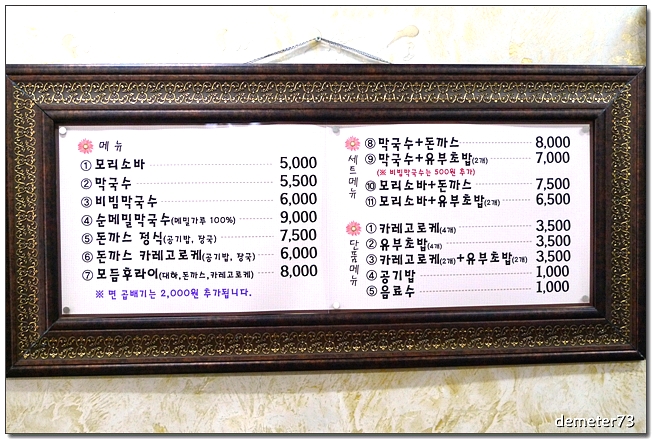 메뉴
① 모리소바 5,000
② 막국수 5,500
③ 비빔막국수 6,000
④ 순메밀막국수(메밀가루 100%) 9,000
⑤ 돈까스 정식(공기밥, 장국) 7,500
⑥ 돈까스 카레고로케(공기밥, 장국) 6,000
⑦ 모듬후라이(대하,돈까스,카레고로케) 8,000
※ 면 곱배기는 2,000원 추가됩니다.
세트메뉴
⑧ 막국수+돈까스 8,000
⑨ 막국수+유부초밥(2개) 7,000
(※ 비빔막국수는 500원 추가)
⑩ 모리소바+돈까스 7,500
⑪ 모리소바+유부초밥(2개) 6,500
단품메뉴
① 카레고로케(4개) 3,500
② 유부초밥(4개) 3,500
③ 카레고로케(2개)+유부초밥(2개) 3,500
④ 공기밥 1,000
⑤ 음료수 1,000
demeter73